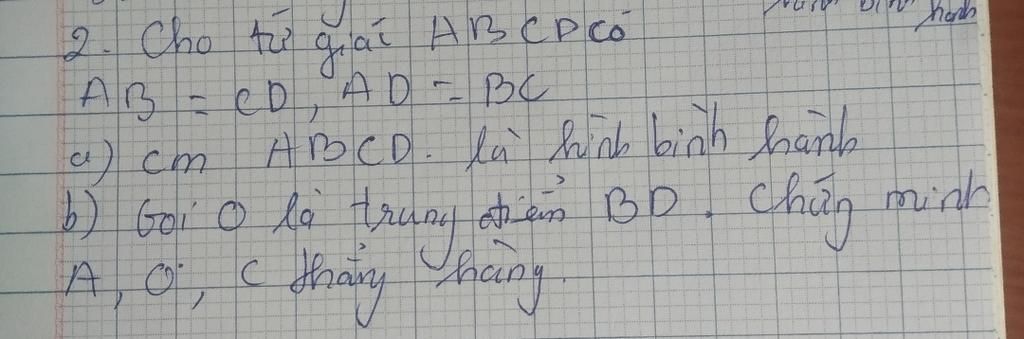 hành
2. Cho tứ giác ABCD có
AB = CD, AD = BC
a) cm ABCD. là hình bình hành
b) Gọi O là trung điểm BD. Chứng minh
A, O, C thẳng hàng.